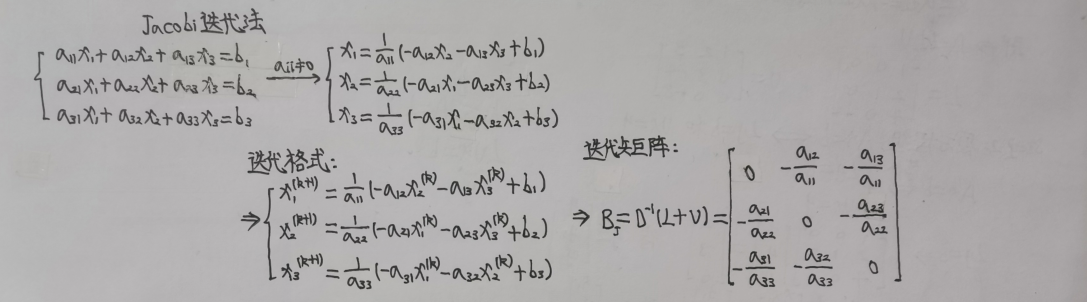 Jacobi迭代法
{ a₁₁x₁+a₁₂x₂+a₁₃x₃=b₁
a₂₁x₁+a₂₂x₂+a₂₃x₃=b₂
a₃₁x₁+a₃₂x₂+a₃₃x₃=b₃
aᵢᵢ≠0 →
{ x₁=1/a₁₁(-a₁₂x₂-a₁₃x₃+b₁)
x₂=1/a₂₂(-a₂₁x₁-a₂₃x₃+b₂)
x₃=1/a₃₃(-a₃₁x₁-a₃₂x₂+b₃)
迭代格式:
⇒ { x₁^(k+1)=1/a₁₁(-a₁₂x₂^(k)-a₁₃x₃^(k)+b₁)
x₂^(k+1)=1/a₂₂(-a₂₁x₁^(k)-a₂₃x₃^(k)+b₂)
x₃^(k+1)=1/a₃₃(-a₃₁x₁^(k)-a₃₂x₂^(k)+b₃)
迭代矩阵:
⇒ B_J=D⁻¹(L+U)=
[ 0 -a₁₂/a₁₁ -a₁₃/a₁₁
-a₂₁/a₂₂ 0 -a₂₃/a₂₂
-a₃₁/a₃₃ -a₃₂/a₃₃ 0 ]